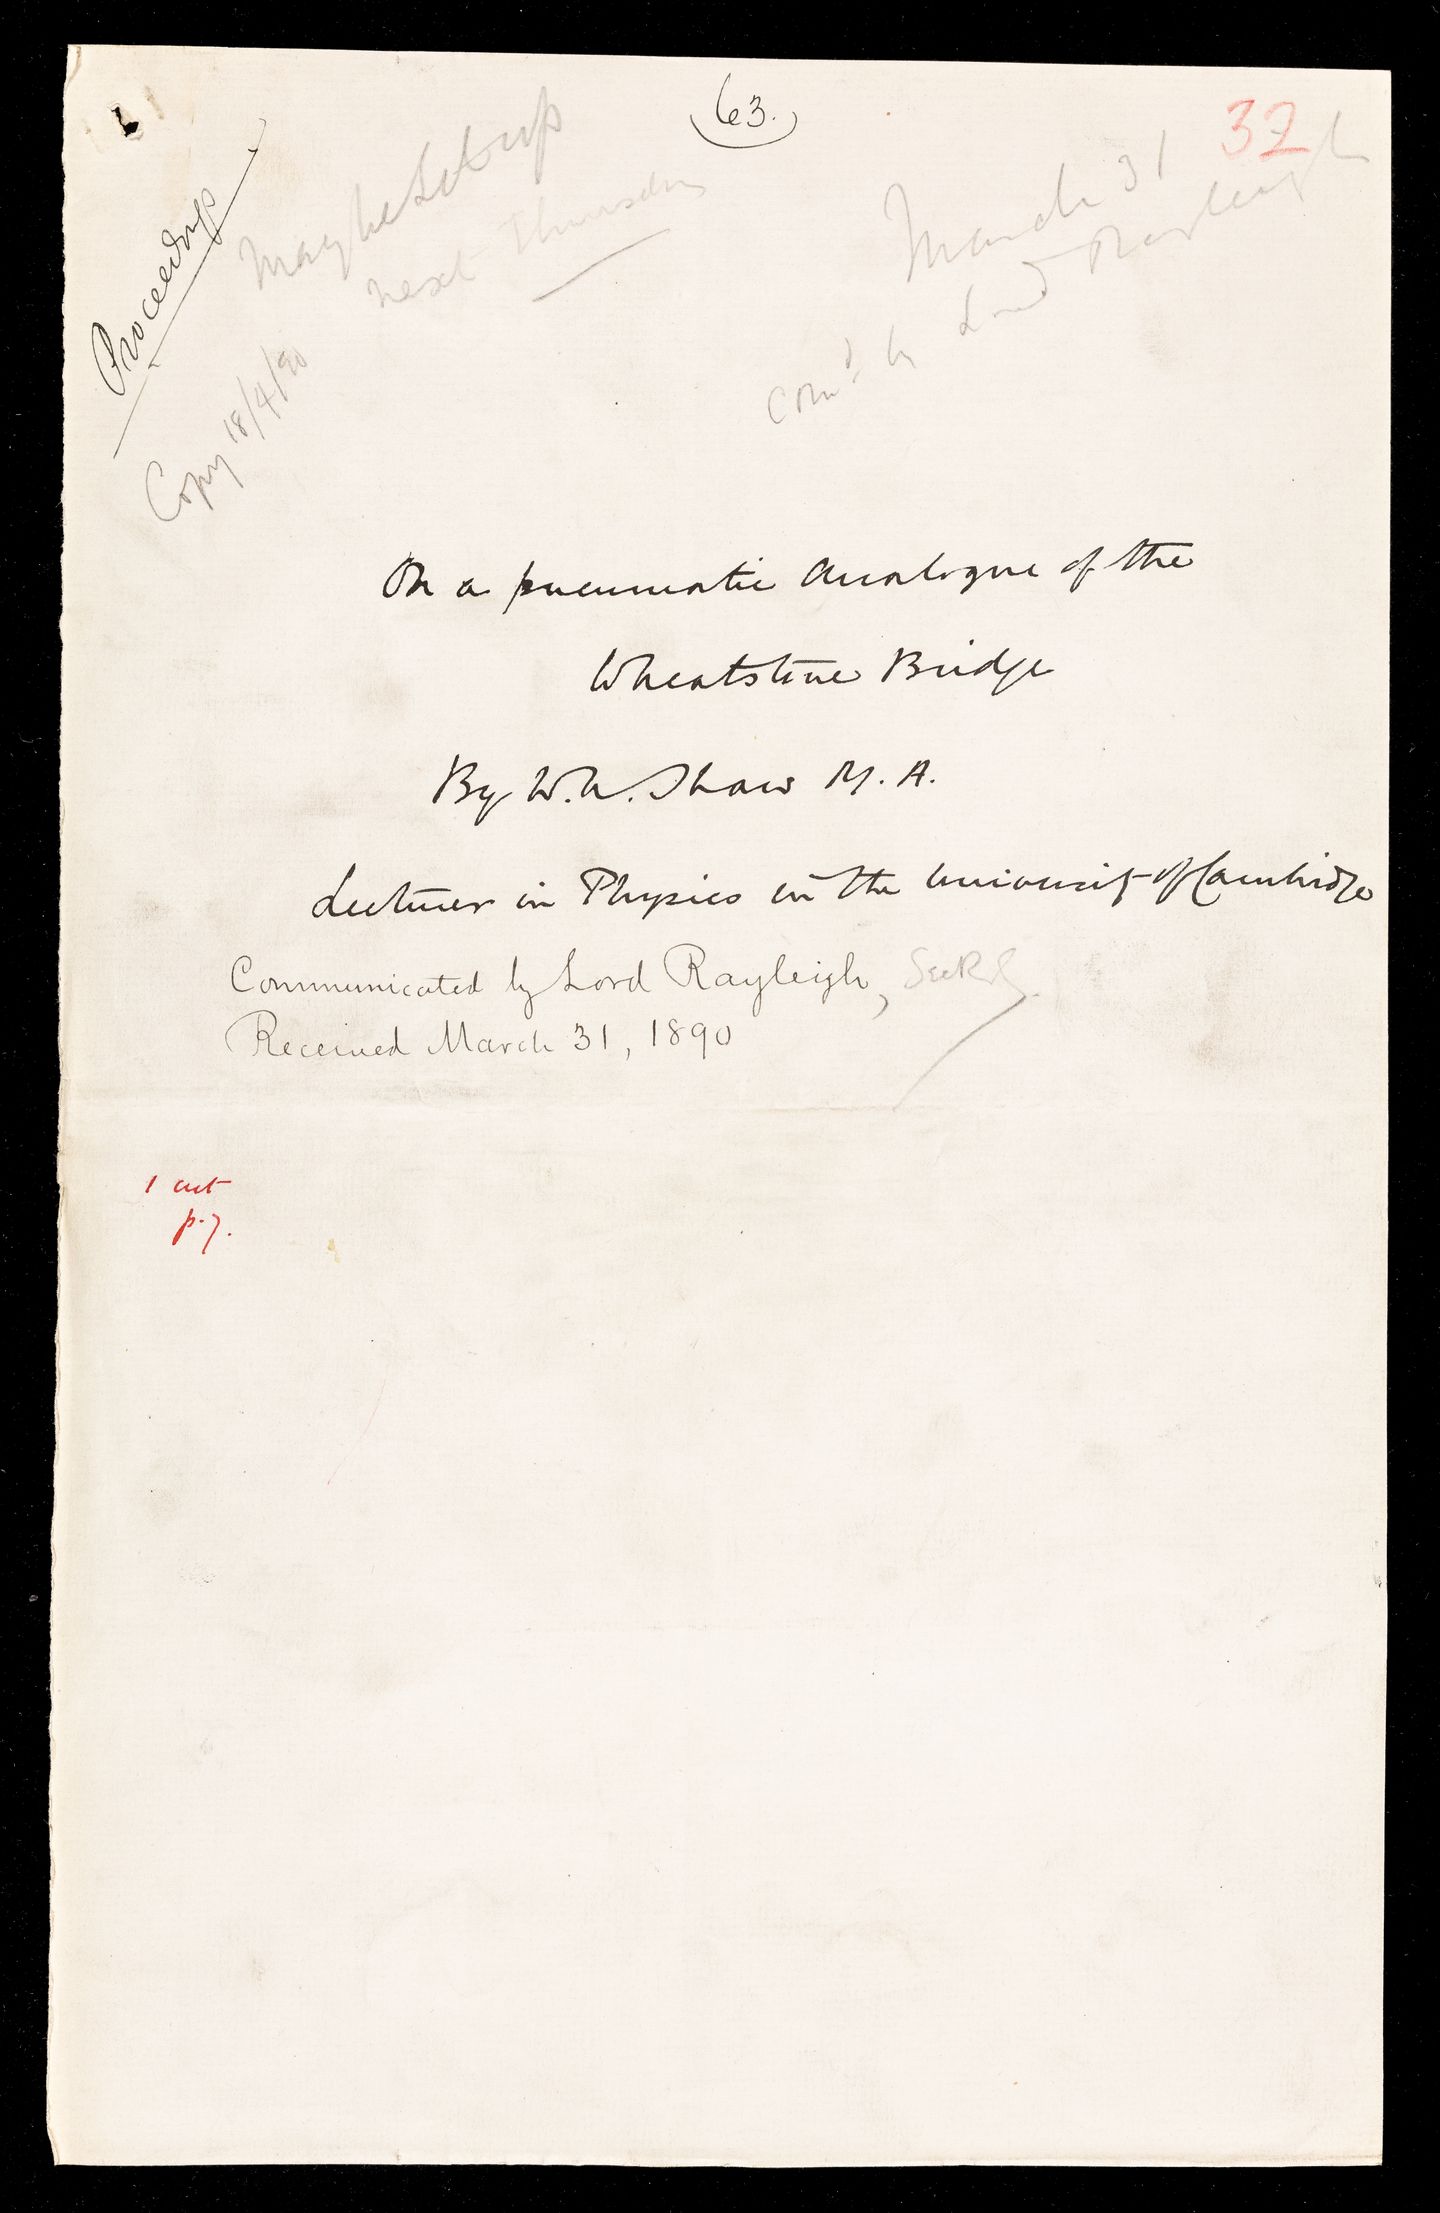 63.
32
Proceedings
May be Set up
next Thursday
Copy 18/4/90
March 31
Com^d by Lord Rayleigh
On a pneumatic analogue of the
Wheatstone Bridge
By W. N. Shaw M. A.
Lecturer in Physics in the University of Cambridge
Communicated by Lord Rayleigh, Sec R.S.
Received March 31, 1890
1 cut
p. 7.